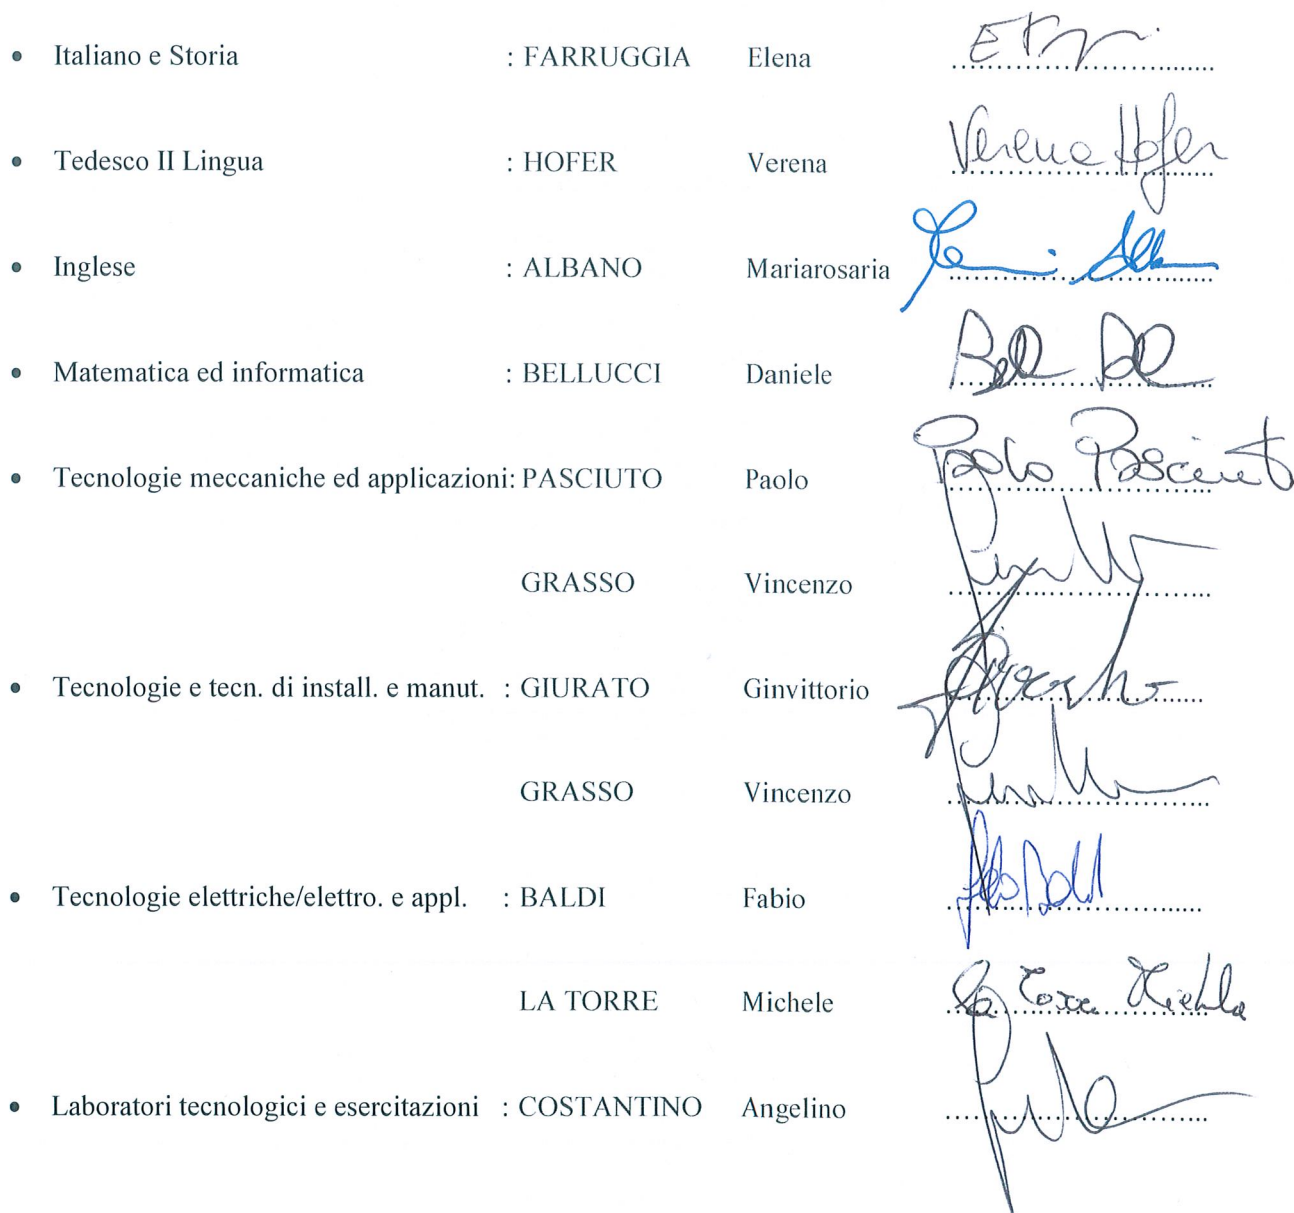 • Italiano e Storia : FARRUGGIA Elena
• Tedesco II Lingua : HOFER Verena Verena Hofer
• Inglese : ALBANO Mariarosaria
• Matematica ed informatica : BELLUCCI Daniele
• Tecnologie meccaniche ed applicazioni: PASCIUTO Paolo Paolo Pasciuto
GRASSO Vincenzo
• Tecnologie e tecn. di install. e manut. : GIURATO Ginvittorio
GRASSO Vincenzo
• Tecnologie elettriche/elettro. e appl. : BALDI Fabio
LA TORRE Michele La Torre Michele
• Laboratori tecnologici e esercitazioni : COSTANTINO Angelino